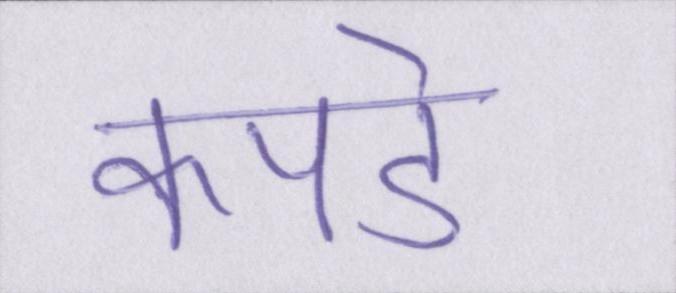 कपडे